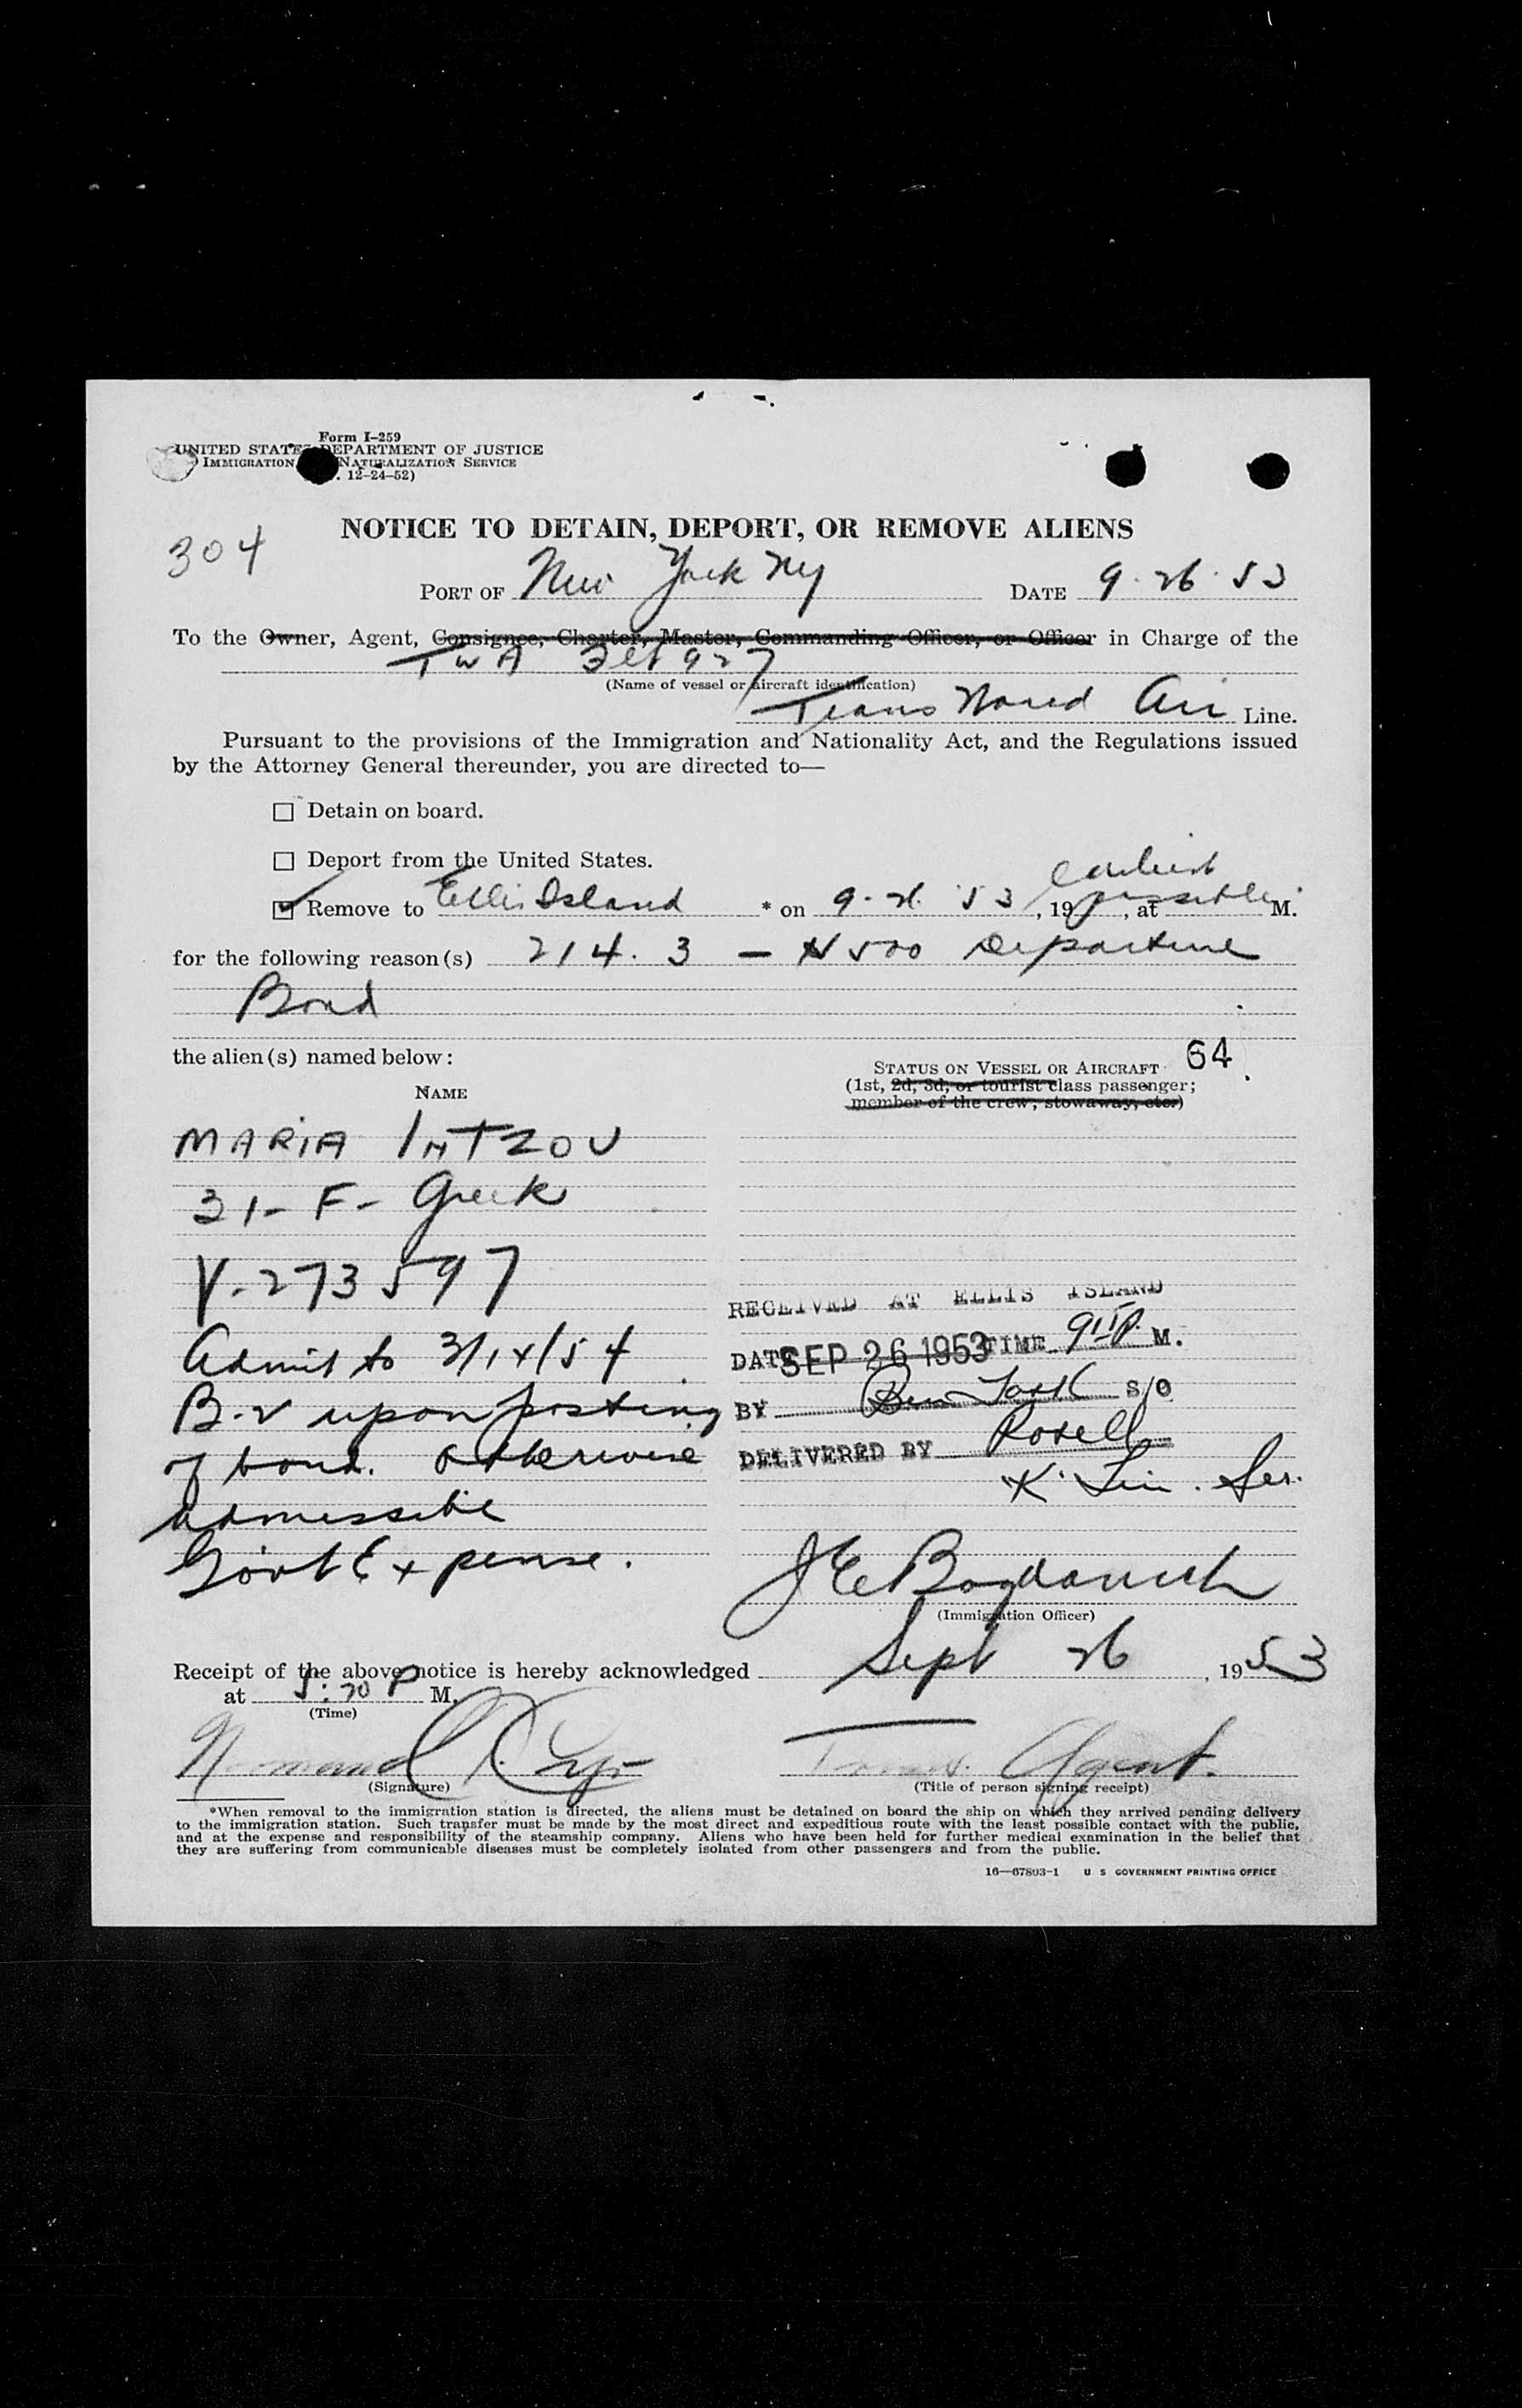 Form I-259
UNITED STATES DEPARTMENT OF JUSTICE
IMMIGRATION NATURALIZATION SERVICE
. 12-24-52)
304
NOTICE TO DETAIN, DEPORT, OR REMOVE ALIENS
PORT OF New York NY DATE 9-26-53
To the Owner, Agent, Consignee, Charter, Master, Commanding Officer, or Officer in Charge of the
TWA Flt 927
(Name of vessel or aircraft identification)
Trans World Air Line.
Pursuant to the provisions of the Immigration and Nationality Act, and the Regulations issued
by the Attorney General thereunder, you are directed to—
☐ Detain on board.
☐ Deport from the United States.
earliest
☑ Remove to Ellis Island * on 9-26-53, 19 , at possible M.
for the following reason(s) 214.3 – $500 Departure
Bond
the alien(s) named below:
64
NAME
STATUS ON VESSEL OR AIRCRAFT
(1st, 2d, 3d, or tourist class passenger;
member of the crew; stowaway, etc.)
MARIA INTZOU
31- F- Greek
V-273597
RECEIVED AT ELLIS ISLAND
Admit to 3/14/54
DATE SEP 26 1953 TIME 9 P. M.
B-2 upon posting
BY Ben S/O
of bond. Otherwise
DELIVERED BY Rosell
admissible
Gov't Expense.
J E Bogdanich
(Immigration Officer)
Receipt of the above notice is hereby acknowledged Sept 26, 1953
at 5:20 P M.
(Time)
Agent.
(Signature) (Title of person signing receipt)
*When removal to the immigration station is directed, the aliens must be detained on board the ship on which they arrived pending delivery
to the immigration station. Such transfer must be made by the most direct and expeditious route with the least possible contact with the public,
and at the expense and responsibility of the steamship company. Aliens who have been held for further medical examination in the belief that
they are suffering from communicable diseases must be completely isolated from other passengers and from the public.
16—67893-1 U S GOVERNMENT PRINTING OFFICE